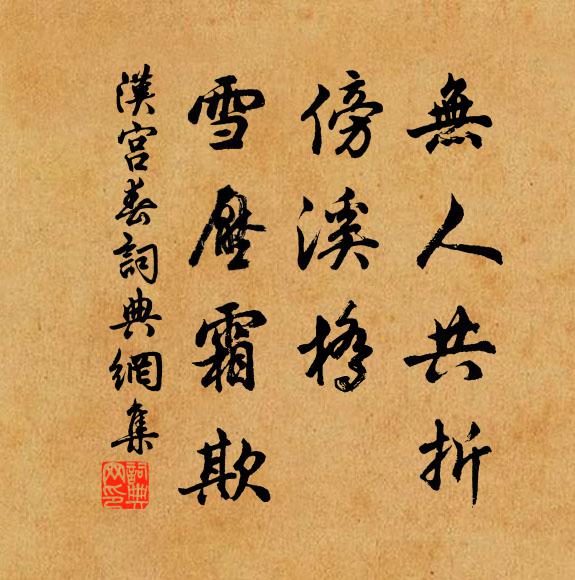 無人共折
傍溪橋
雪壓霜欺
漢宮春詞典網集
詞典
网印